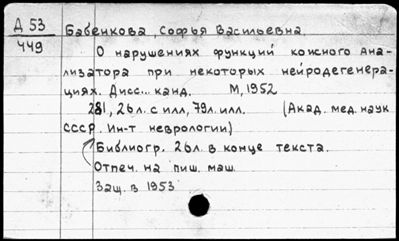 Д 53
449
Бабенкова, Софья Васильевна.
О нарушениях функций кожного ана-
лизатора при некоторых нейродегенера-
циях. Дисс... канд. М, 1952
281, 26л. с илл, 79л. илл. (Акад. мед. наук
СССР. Ин-т неврологии)
Библиогр. 26л. в конце текста.
Отпеч. на пиш. маш.
Защ. в 1953